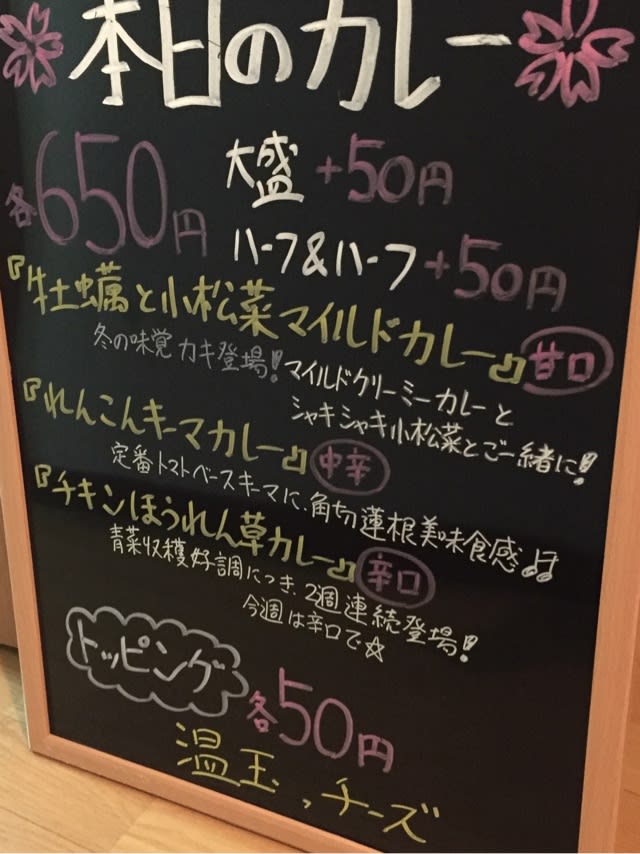 本日のカレー
各650円 大盛+50円
ハーフ&ハーフ+50円
『牡蠣と小松菜マイルドカレー』甘口
冬の味覚カキ登場! マイルドクリーミーカレーと
シャキシャキ小松菜とご一緒に!
『れんこんキーマカレー』中辛
定番トマトベースキーマに、角切蓮根美味食感♫
『チキンほうれん草カレー』辛口
青菜収穫好調につき、2週連続登場!
今週は辛口で☆
トッピング 各50円
温玉、チーズ